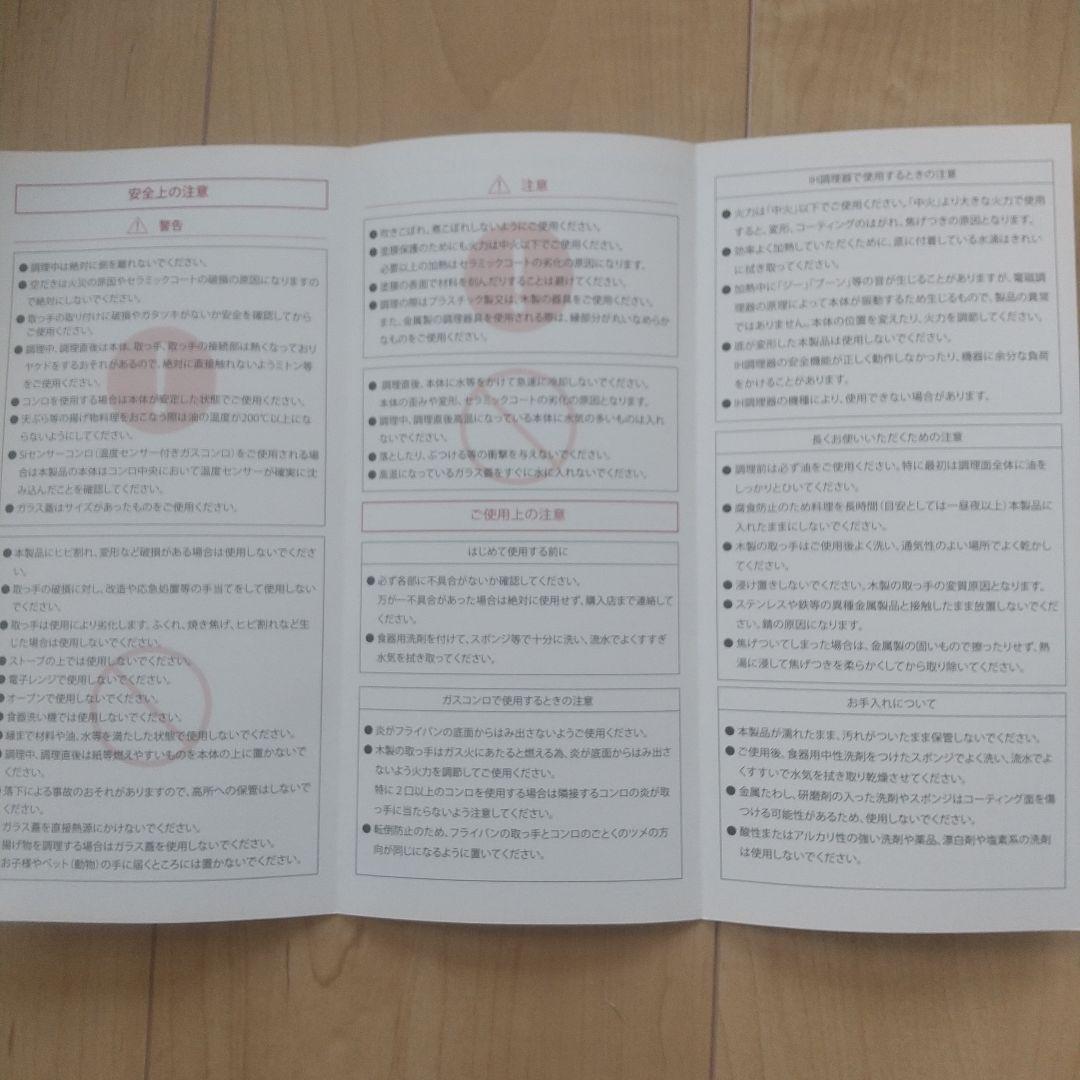 安全上の注意
警告
●調理中は絶対に側を離れないでください。
●空だきは火災の原因やセラミックコートの破損の原因になりますの
で絶対にしないでください。
●取っ手の取り付けに破損やガタツキがないか安全を確認してから
ご使用ください。
●調理中、調理直後は本体、取っ手、取っ手の接続部は熱くなっており
ヤケドをするおそれがあるので、絶対に直接触れないようミトン等
をご使用ください。
●コンロを使用する場合は本体が安定した状態でご使用ください。
●天ぷら等の揚げ物料理をおこなう際は油の温度が200℃以上にな
らないようにしてください。
●Siセンサーコンロ(温度センサー付きガスコンロ)をご使用される場
合は本製品の本体はコンロ中央において温度センサーが確実に沈
み込んだことを確認してください。
●ガラス蓋はサイズがあったものをご使用ください。
●本製品にヒビ割れ、変形など破損がある場合は使用しないでくださ
い。
●取っ手の破損に対し、改造や応急処置等の手当てをして使用しない
でください。
●取っ手は使用により劣化します。ふくれ、焼き焦げ、ヒビ割れなど生
じた場合は使用しないでください。
●ストーブの上では使用しないでください。
●電子レンジで使用しないでください。
●オーブンで使用しないでください。
●食器洗い機では使用しないでください。
●縁まで材料や油、水等を満たした状態で使用しないでください。
●調理中、調理直後は紙等燃えやすいものを本体の上に置かないで
ください。
落下による事故のおそれがありますので、高所への保管はしないで
ください。
ガラス蓋を直接熱源にかけないでください。
揚げ物を調理する場合はガラス蓋を使用しないでください。
お子様やペット(動物)の手に届くところには置かないでください。
注意
●吹きこぼれ、煮こぼれしないようにご使用ください。
●塗膜保護のためにも火力は中火以下でご使用ください。
必要以上の加熱はセラミックコートの劣化の原因になります。
●塗膜の表面で材料を刻んだりすることは避けてください。
●調理の際はプラスチック製又は、木製の器具をご使用ください。
また、金属製の調理器具を使用される際は、縁部分が丸いなめらか
なものをご使用ください。
●調理直後、本体に水等をかけて急速に冷却しないでください。
本体の歪みや変形、セラミックコートの劣化の原因となります。
●調理中、調理直後高温になっている本体に水気の多いものは入れ
ないでください。
●落としたり、ぶつける等の衝撃を与えないでください。
●高温になっているガラス蓋をすぐに水に入れないでください。
ご使用上の注意
はじめて使用する前に
●必ず各部に不具合がないか確認してください。
万が一不具合があった場合は絶対に使用せず、購入店まで連絡して
ください。
●食器用洗剤を付けて、スポンジ等で十分に洗い、流水でよくすすぎ
水気を拭き取ってください。
ガスコンロで使用するときの注意
●炎がフライパンの底面からはみ出さないようご使用ください。
●木製の取っ手はガス火にあたると燃える為、炎が底面からはみ出さ
ないよう火力を調節してご使用ください。
特に2口以上のコンロを使用する場合は隣接するコンロの炎が取
っ手に当たらないよう注意してください。
●転倒防止のため、フライパンの取っ手とコンロのごとくのツメの方
向が同じになるように置いてください。
IH調理器で使用するときの注意
●火力は「中火」以下でご使用ください。「中火」より大きな火力で使用
すると、変形、コーティングのはがれ、焦げつきの原因となります。
●効率よく加熱していただくために、底に付着している水滴はきれい
に拭き取ってください。
●加熱中に「ジー」「ブーン」等の音が生じることがありますが、電磁調
理器の原理によって本体が振動するため生じるもので、製品の異常
ではありません。本体の位置を変えたり、火力を調節してください。
●底が変形した本製品は使用しないでください。
IH調理器の安全機能が正しく動作しなかったり、機器に余分な負荷
をかけることがあります。
●IH調理器の機種により、使用できない場合があります。
長くお使いいただくための注意
●調理前は必ず油をご使用ください。特に最初は調理面全体に油を
しっかりとひいてください。
●腐食防止のため料理を長時間(目安としては一昼夜以上)本製品に
入れたままにしないでください。
●木製の取っ手はご使用後よく洗い、通気性のよい場所でよく乾かし
てください。
●浸け置きしないでください。木製の取っ手の変質原因となります。
●ステンレスや鉄等の異種金属製品と接触したまま放置しないでくだ
さい。錆の原因になります。
●焦げついてしまった場合は、金属製の固いもので擦ったりせず、熱
湯に浸して焦げつきを柔らかくしてから取り除いてください。
お手入れについて
●本製品が濡れたまま、汚れがついたまま保管しないでください。
●ご使用後、食器用中性洗剤をつけたスポンジでよく洗い、流水でよ
くすすいで水気を拭き取り乾燥させてください。
●金属たわし、研磨剤の入った洗剤やスポンジはコーティング面を傷
つける可能性があるため、使用しないでください。
●酸性またはアルカリ性の強い洗剤や薬品、漂白剤や塩素系の洗剤
は使用しないでください。